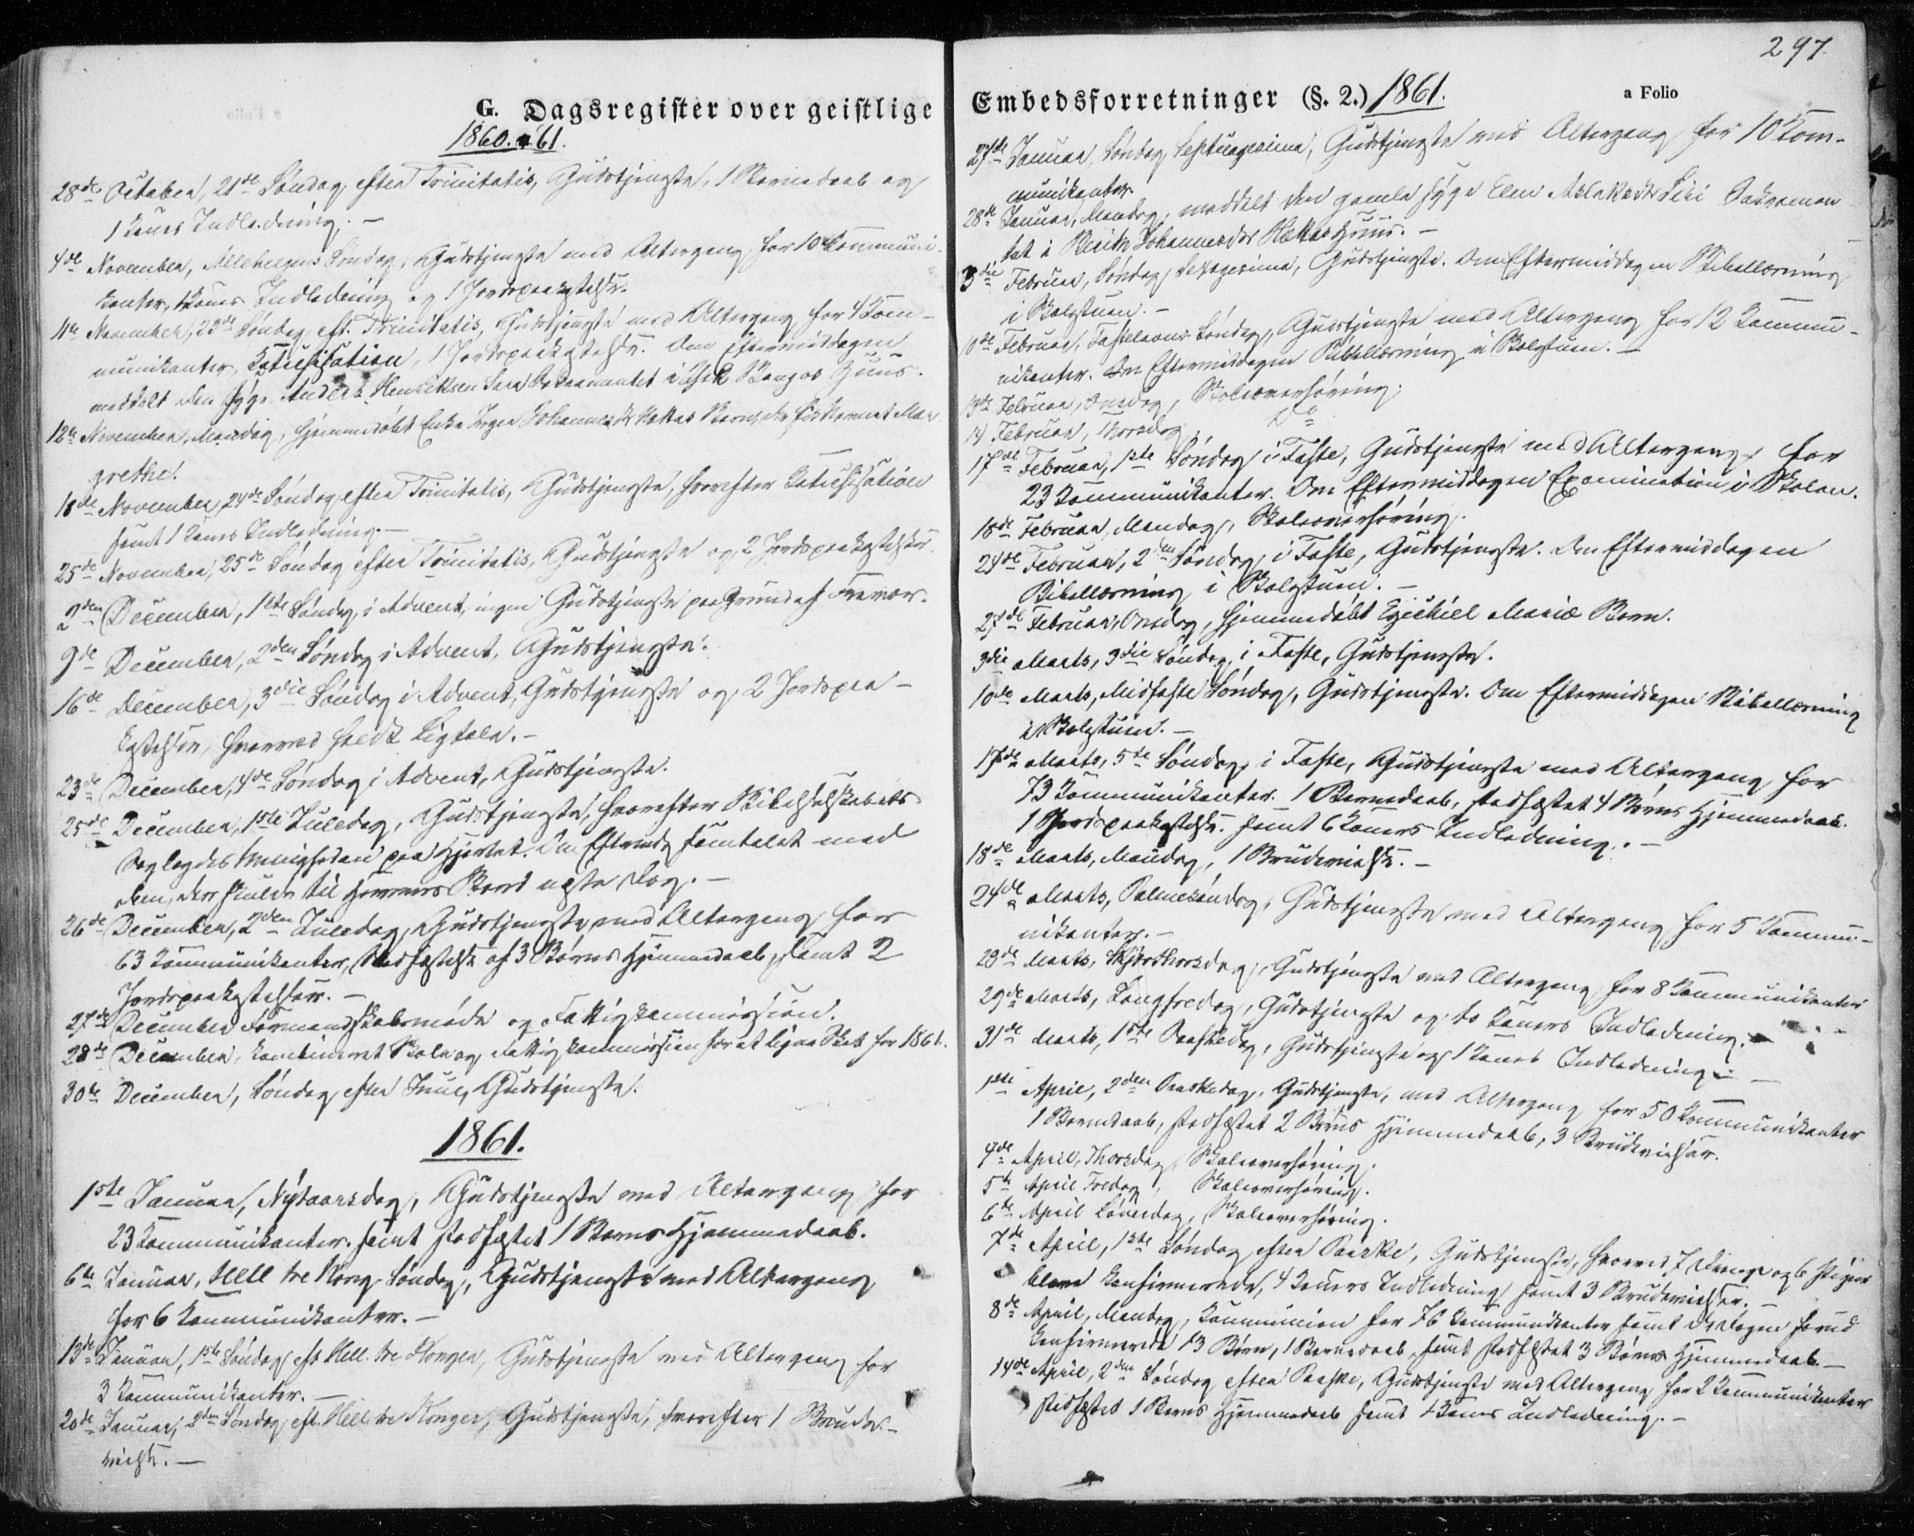 G. Dagsregister over geistlige
1860. & 61.
28de October, 21de Søndag efter Trinitatis, Gudstjeneste, 1 Barnedaab og
1 Kones Indledning. —
4de November, Allehelgens Søndag, Gudstjeneste med Altergang for 10 Kommuni-
kanter, Kones Indledning og 1 Jordspaakastelse.
11te November, 23de Søndag eft. Trinitatis, Gudstjeneste med Altergang for 4 Kom-
munikanter, Katechisation, 1 Jordspaakastelse. Om Eftermiddagen
meddelt den syge Anders Henriksen Sara Sakramentet i Huus.
12te November, Mandag, hjemmedøbt Enke Inger Johannesdr Hættas Barn, Mar-
grethe.
18de November, 24de Søndag efter Trinitatis, Gudstjeneste, hvorefter Katechisation
samt 1 Kones Indledning. —
25de November, 25de Søndag efter Trinitatis, Gudstjeneste og 2 Jordspaakastelser.
2den December, 1ste Søndag i Advent, ingen Gudstjeneste paa Grund af
9de December, 2den Søndag i Advent, Gudstjeneste.
16de December, 3die Søndag i Advent, Gudstjeneste og 2 Jordspaa-
kastelser, hvorved holdt Ligtale. —
23de December, 4de Søndag i Advent, Gudstjeneste.
25de December, 1ste Juledag, Gudstjeneste, hvorefter Bibelselskabets
lagdes Menigheden paa Hjertet. Om Efterm. samtalet med
dem, der skulde til Herrens Bord næste Dag. —
26de December, 2den Juledag, Gudstjeneste med Altergang for
63 Kommunikanter, Stadfæstelse af 3 Børns Hjemmedaab, samt 2
Jordspaakastelser. —
27de December Formandskabsmøde og Fattigkommission.
28de December, kombineret Skole og Fattigkommission for at ligne Skat for 1861.
30te December, Søndag efter Juul, Gudstjeneste.
1861.
1ste Januar, Nytaarsdag, Gudstjeneste med Altergang for
23 Kommunikanter samt stadfæstet 1 Barns Hjemmedaab.
6te Januar, Hell tre Kong. Søndag, Gudstjeneste med Altergang
for 6 Kommunikanter. —
13de Januar, 1ste Søndag eft Hell. tre Konger, Gudstjeneste med Altergang for
3 Kommunikanter. —
20de Januar, 2den Søndag eft. Hell. tre Konger, Gudstjeneste, hvorefter 1 Brude-
vielse. —
297.
Embedsforretninger (§. 2.) 1861.
a Folio
27de Januar, Søndag Septuagesima, Gudstjeneste med Altergang for 10 Kom-
munikanter.
28de Januar, Mandag, meddelt den gamle syge Elen Aslaksdr Siri Sakramen-
tet i Berith Johannesdr Hættas Huus. —
3die Februar, Søndag Sexagesima, Gudstjeneste. Om Eftermiddagen Bibellæsning
i Skolestuen. —
10de Februar, Fastelavns Søndag, Gudstjeneste med Altergang for 12 Kommu-
nikanter. Om Eftermiddagen Bibellæsning i Skolestuen. —
13de Februar, Onsdag, Skoleoverhøring.
14 Februar, Thorsdag, Do
17de Februar, 1ste Søndag i Faste, Gudstjeneste med Altergang for
23 Kommunikanter. Om Eftermiddagen Examination i Skolen.
18de Februar, Mandag, Skoleoverhøring.
24de Februar, 2den Søndag i Faste, Gudstjeneste. Om Eftermiddagen
Bibellæsning i Skolestuen. —
27de Februar, Onsdag, hjemmedøbt Ezechiel Mariæ Barn.
3die Marts, 3die Søndag i Faste, Gudstjeneste.
10de Marts, Midfaste Søndag, Gudstjeneste. Om Eftermiddagen Bibellæsning
i Skolestuen. —
17de Marts, 5te Søndag i Faste, Gudstjeneste med Altergang for
73 Kommunikanter. 1 Barnedaab, stadfæstet 4 Børns Hjemmedaab.
1 Jordspaakastelse. samt 6 Koners Indledning. —
18de Marts, Mandag, 1 Brudevielse. —
24de Marts, Palmesøndag, Gudstjeneste med Altergang for 5 Kommu-
nikanter. —
28de Marts, Skjærthorsdag, Gudstjeneste med Altergang for 8 Kommunikanter
29de Marts, Langfredag, Gudstjeneste og to Koners Indledning.
31te Marts, 1ste Paaskedag, Gudstjeneste og 1 Kones Indledning. —
1ste April, 2den Paaskedag, Gudstjeneste, med Altergang for 50 Kommunikanter
1 Barnedaab, stadfæstet 2 Børns Hjemmedaab, 3 Brudevielser.
4de April, Thorsdag, Skoleoverhøring.
5te April Fredag, Skoleoverhøring.
6te April Løverdag, Skoleoverhøring.
7de April, 1ste Søndag efter Paaske, Gudstjeneste, hvorved 7 Drenge og 6 Piger
bleve konfirmerede, 4 Koners Indledning samt 3 Brudevielser. —
8de April, Mandag, Kommunion for 76 Kommunikanter samt de Dagen forud
konfirmerede 13 Børn, 1 Barnedaab, samt stadfæstet 3 Børns Hjemmedaab. —
14de April, 2den Søndag efter Paaske, Gudstjeneste med Altergang for 2 Kommunikanter
stadfæstet 1 Barns Hjemmedaab samt 1 Kones Indledning. —